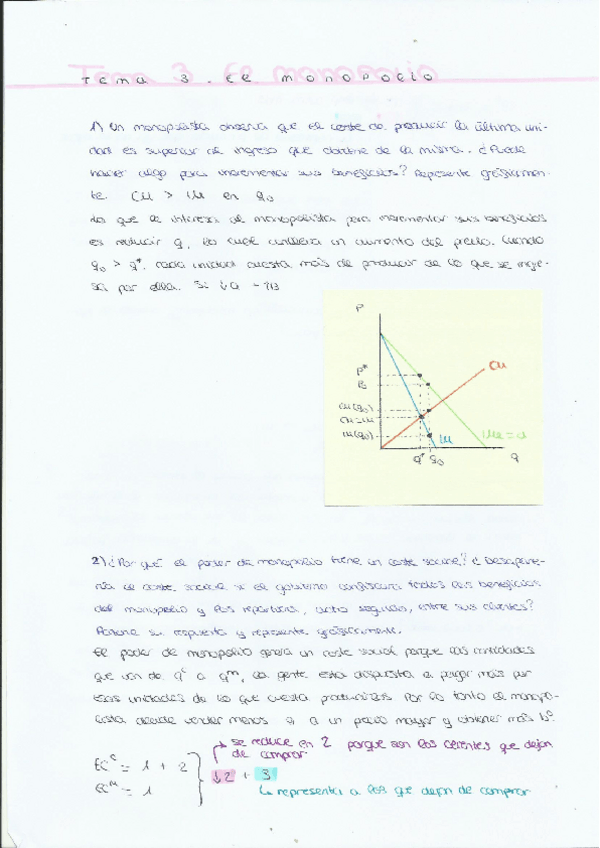 Tema 3. El monopolio
1) Un monopolista observa que el coste de producir la última uni-
dad es superior al ingreso que obtiene de la misma. ¿Puede
hacer algo para incrementar sus beneficios? Represente gráficamen-
te. CM > IM en q₀
Lo que le interesa al monopolista para incrementar sus beneficios
es reducir q, lo cual conlleva un aumento del precio. Cuando
q₀ > q*, cada unidad cuesta más de producir de lo que se ingre-
sa por ella. Si ↓q
P
P*
P₀
CM(q₀)
CM=IM
IM(q₀)
CM
IM
IMe=
q*
q₀
q
2) ¿Por qué el poder de monopolio tiene un coste social? ¿Desapare-
ría el coste social si el gobierno confiscara todos los beneficios
del monopolio y los repartiera, acto seguido, entre sus clientes?
Razone su respuesta y represente gráficamente.
El poder de monopolio genera un coste social porque las cantidades
que van de qᶜ a qᵐ, la gente esta dispuesta a pagar más por
esas unidades de lo que cuesta producirlas. Por lo tanto el monopo-
lista decide vender menos q a un precio mayor y obtener más bº.
se reduce en 2 porque son los clientes que dejan
de comprar
ECᶜ = 1 + 2
↓2 + 3
ECᴹ = 1
representa a los que dejan de comprar